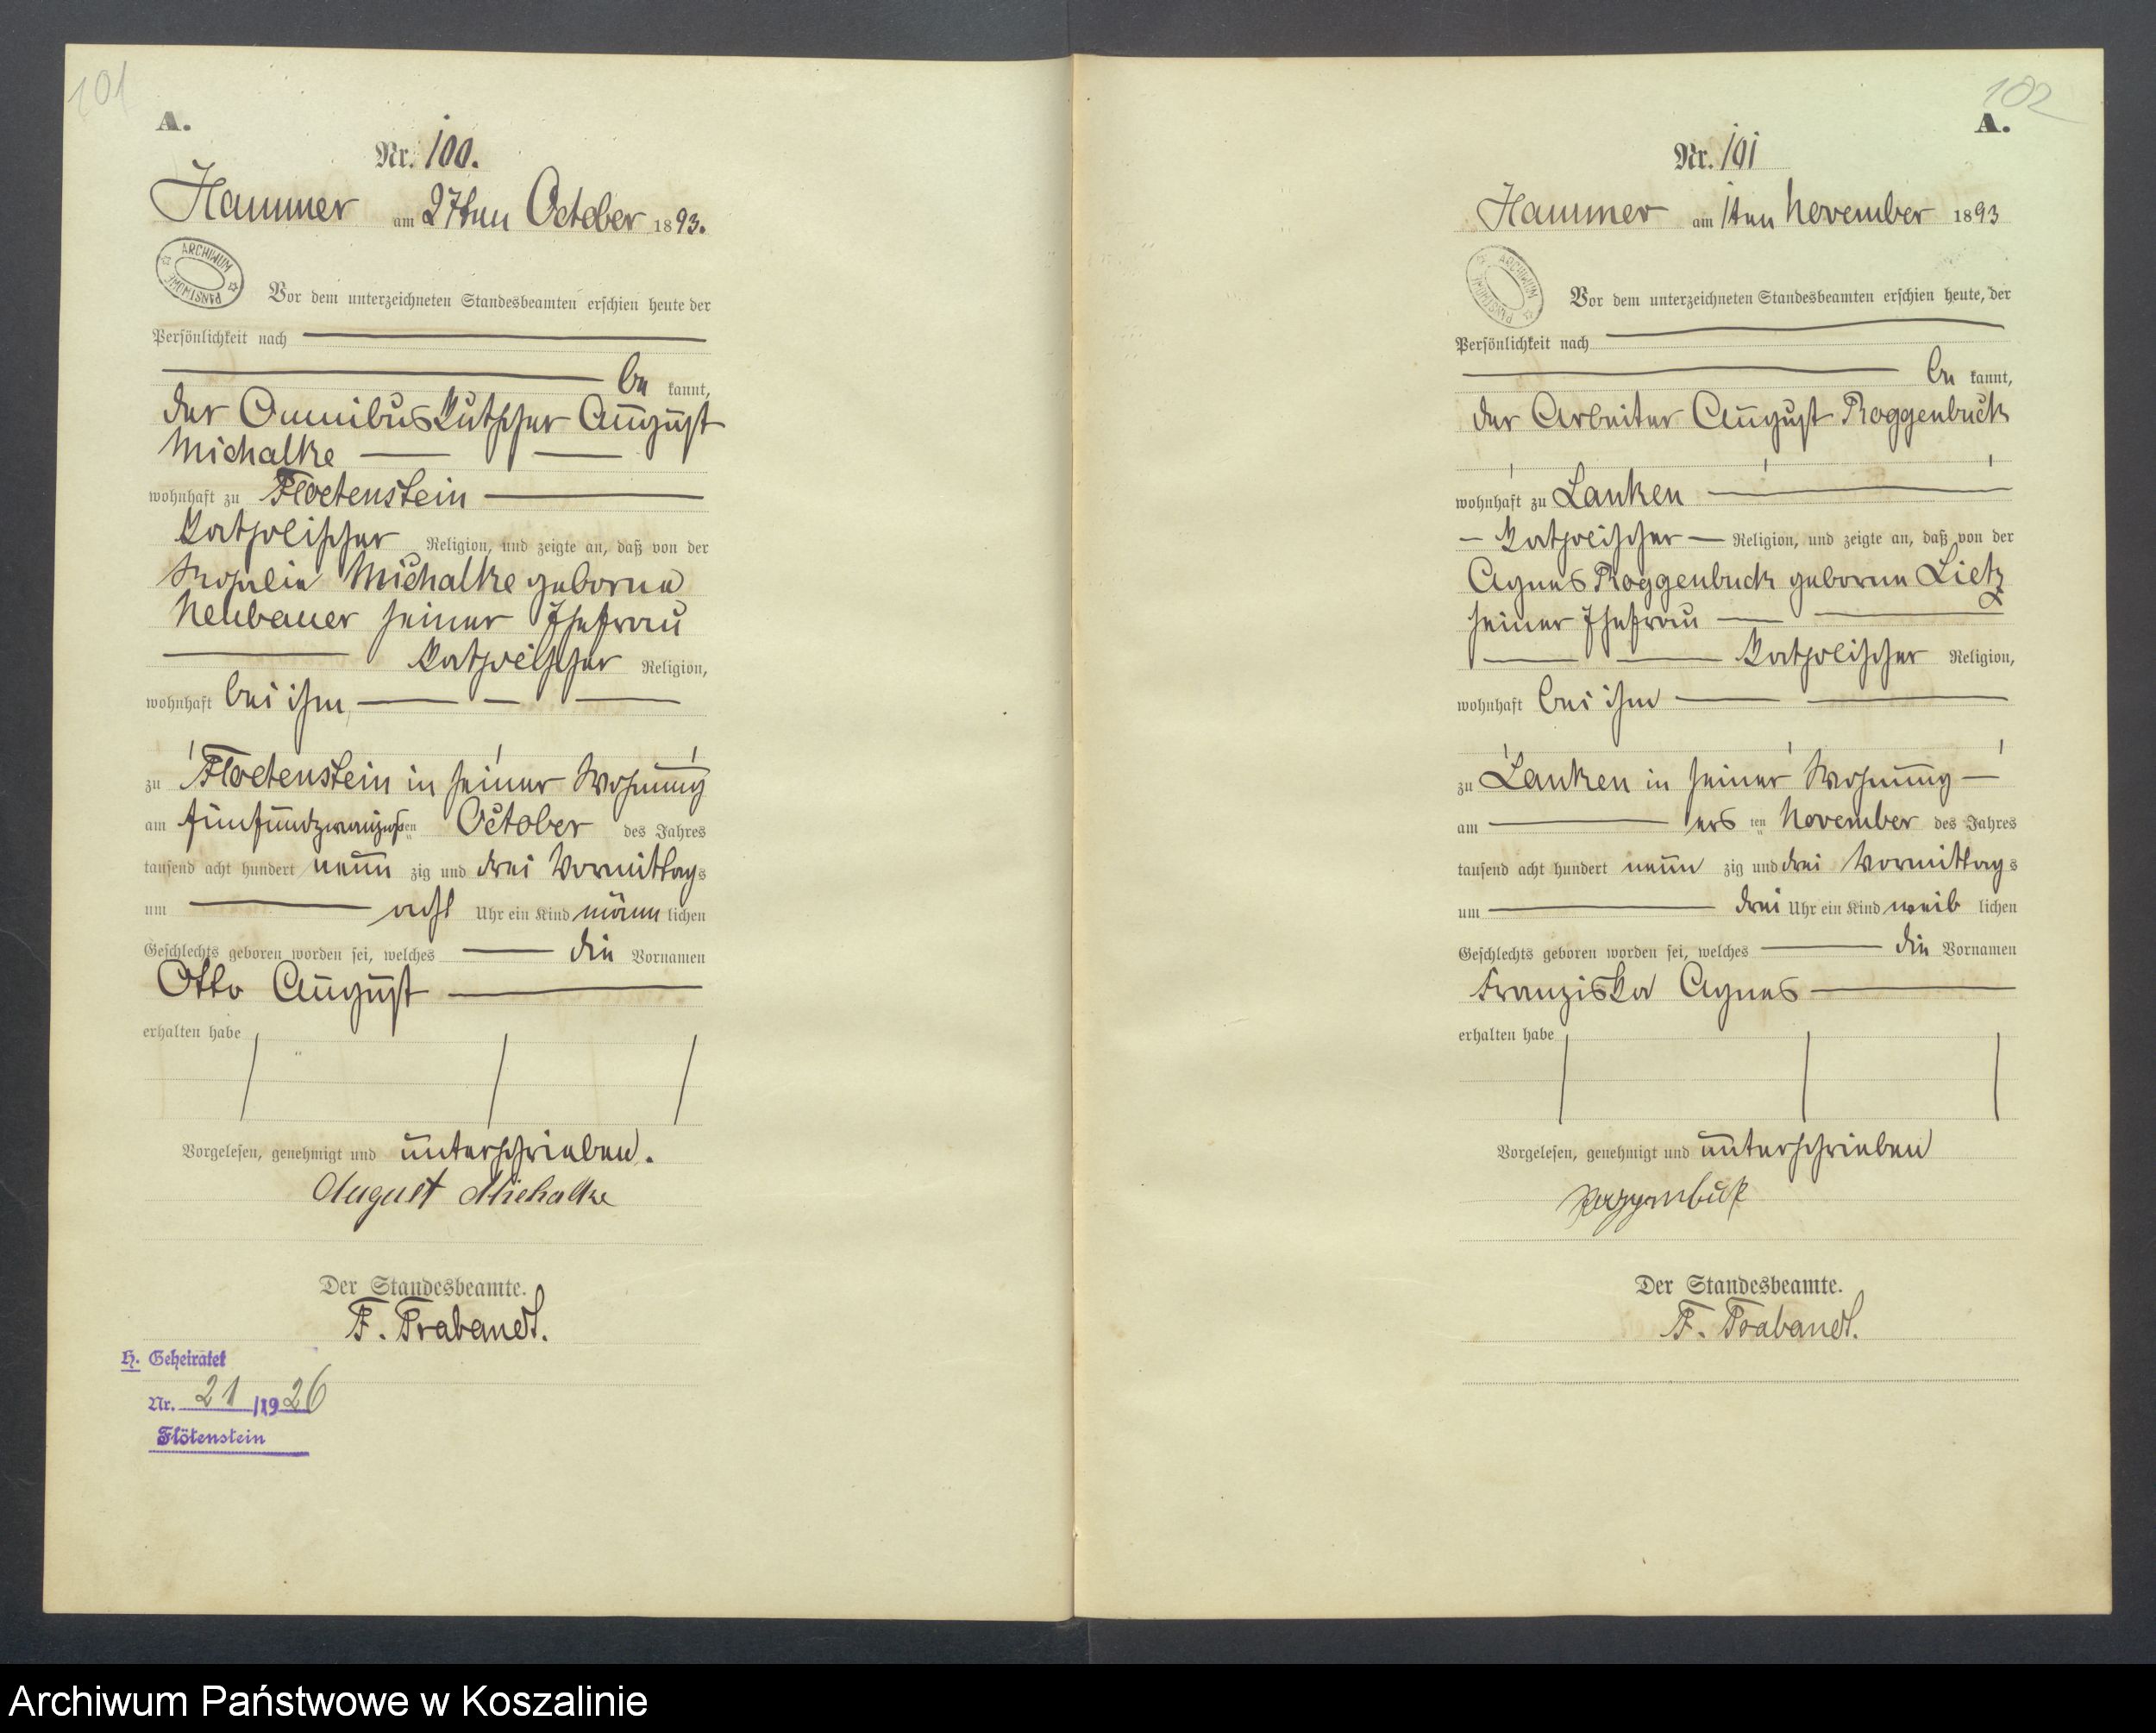 101
A.
Nr. 100.
Hammer am 27ten October 1893.
ARCHIWUM PAŃSTWOWE
Vor dem unterzeichneten Standesbeamten erschien heute der
Persönlichkeit nach
be kannt,
der Omnibuskutscher August
Michalke
wohnhaft zu Floetenstein
katholischer Religion, und zeigte an, daß von der
Rosalie Michalke geborne
Neubauer seiner Ehefrau
katholischer Religion,
wohnhaft bei ihm
zu Floetenstein in seiner Wohnung
am fünfundzwanzigsten October des Jahres
tausend acht hundert neun zig und drei Vormittags
um acht Uhr ein Kind männ lichen
Geschlechts geboren worden sei, welches die Vornamen
Otto August
erhalten habe
Vorgelesen, genehmigt und unterschrieben.
August Michalke
Der Standesbeamte.
F. Trabandt.
H. Geheiratet
Nr. 21 /1926
Flötenstein
102
A.
Nr. 101
Hammer am 1ten November 1893
ARCHIWUM PAŃSTWOWE
Vor dem unterzeichneten Standesbeamten erschien heute, der
Persönlichkeit nach
be kannt,
der Arbeiter August Roggenbuck
wohnhaft zu Lanken
katholischer Religion, und zeigte an, daß von der
Agnes Roggenbuck geborne Lietz
seiner Ehefrau
katholischer Religion,
wohnhaft bei ihm
zu Lanken in seiner Wohnung
am ers ten November des Jahres
tausend acht hundert neun zig und drei Vormittags
um drei Uhr ein Kind weib lichen
Geschlechts geboren worden sei, welches die Vornamen
Franziska Agnes
erhalten habe
Vorgelesen, genehmigt und unterschrieben
Roggenbuck
Der Standesbeamte.
F. Trabandt.
Archiwum Państwowe w Koszalinie